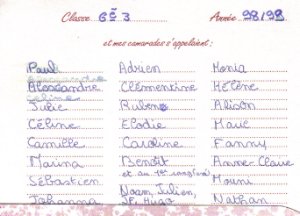 Classe 6è 3 Année 98/99
et mes camarades s'appelaient :
Paul Adrien Monia
Alessandre Clémentine Hélène
Julie Ruben Alison
Céline Elodie Marie
Camille Caroline Fanny
Marina Benoît Anne-Claire
Sébastien et au 1er Mouni
Johanna Noam, Julien, Nathan
JP, Hugo